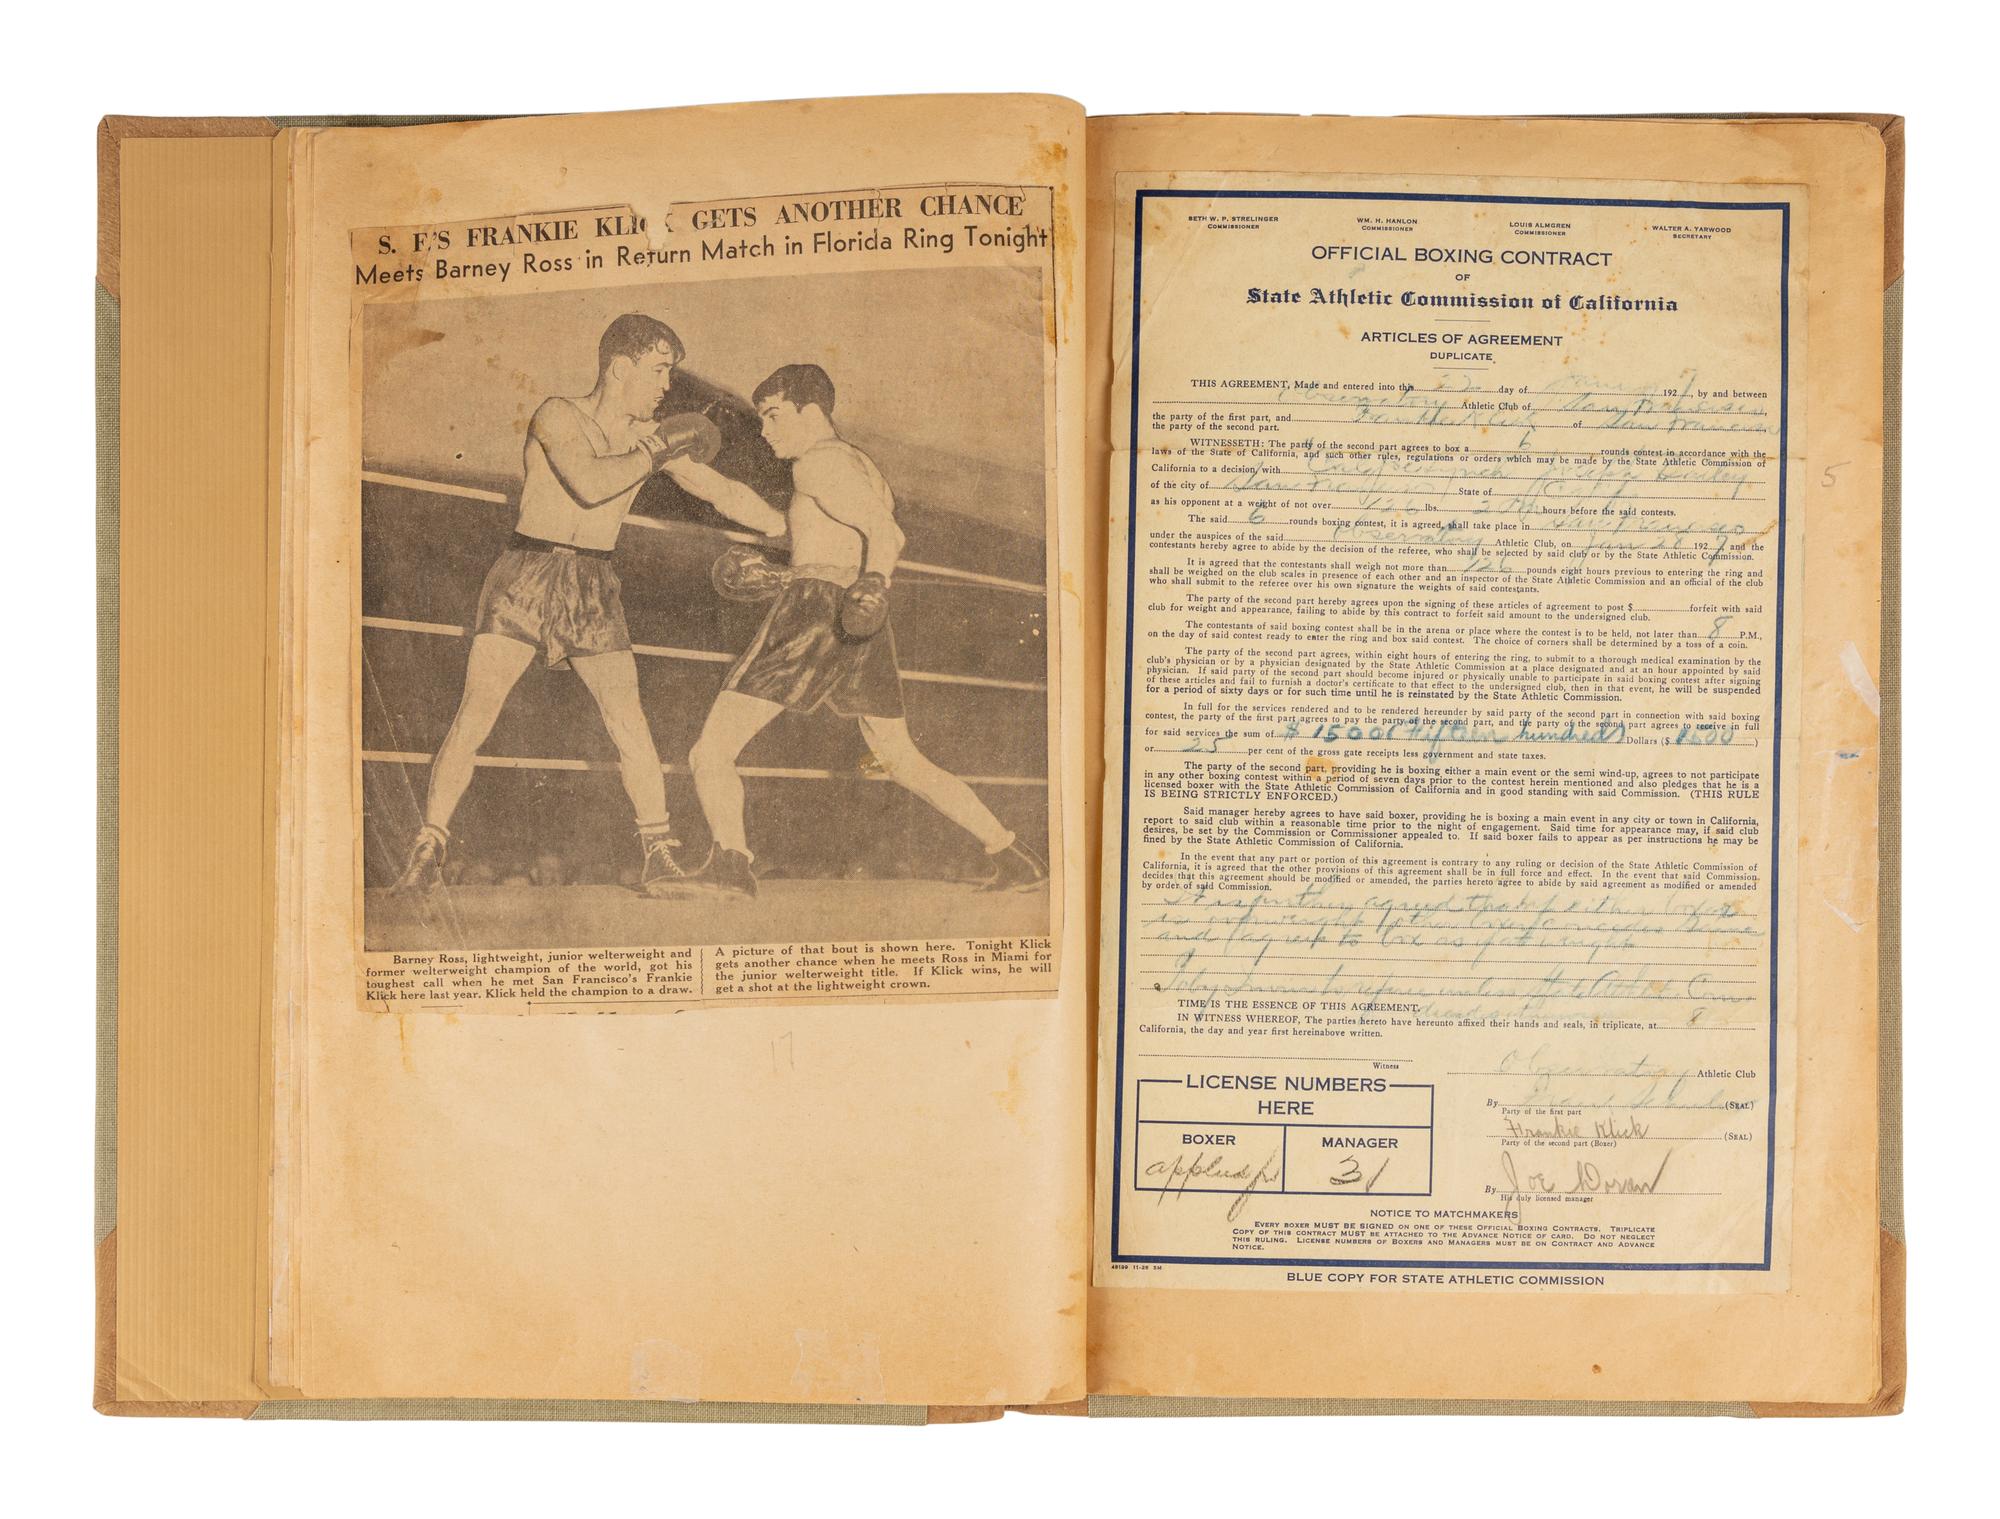 S. F.'S FRANKIE KLICK GETS ANOTHER CHANCE
Meets Barney Ross in Return Match in Florida Ring Tonight
Barney Ross, lightweight, junior welterweight and
former welterweight champion of the world, got his
toughest call when he met San Francisco's Frankie
Klick here last year. Klick held the champion to a draw.
A picture of that bout is shown here. Tonight Klick
gets another chance when he meets Ross in Miami for
the junior welterweight title. If Klick wins, he will
get a shot at the lightweight crown.
17
SETH W. P. STRELINGER
COMMISSIONER
WM. H. HANLON
COMMISSIONER
LOUIS ALMGREN
COMMISSIONER
WALTER A. YARWOOD
SECRETARY
OFFICIAL BOXING CONTRACT
OF
State Athletic Commission of California
ARTICLES OF AGREEMENT
DUPLICATE
THIS AGREEMENT, Made and entered into this 22 day of January 1927, by and between
Observatory Athletic Club of San Francisco,
the party of the first part, and Frankie Klick of San Francisco
the party of the second part.
WITNESSETH: The party of the second part agrees to box a 6 rounds contest in accordance with the
laws of the State of California, and such other rules, regulations or orders which may be made by the State Athletic Commission of
California to a decision with
of the city of San Francisco State of Calif
as his opponent at a weight of not over 126 lbs. hours before the said contests.
The said 6 rounds boxing contest, it is agreed, shall take place in San Francisco
under the auspices of the said Observatory Athletic Club, on Jan 28 1927, and the
contestants hereby agree to abide by the decision of the referee, who shall be selected by said club or by the State Athletic Commission.
It is agreed that the contestants shall weigh not more than 126 pounds eight hours previous to entering the ring and
shall be weighed on the club scales in presence of each other and an inspector of the State Athletic Commission and an official of the club
who shall submit to the referee over his own signature the weights of said contestants.
The party of the second part hereby agrees upon the signing of these articles of agreement to post $ forfeit with said
club for weight and appearance, failing to abide by this contract to forfeit said amount to the undersigned club.
The contestants of said boxing contest shall be in the arena or place where the contest is to be held, not later than 8 P.M.,
on the day of said contest ready to enter the ring and box said contest. The choice of corners shall be determined by a toss of a coin.
The party of the second part agrees, within eight hours of entering the ring, to submit to a thorough medical examination by the
club's physician or by a physician designated by the State Athletic Commission at a place designated and at an hour appointed by said
physician. If said party of the second part should become injured or physically unable to participate in said boxing contest after signing
of these articles and fail to furnish a doctor's certificate to that effect to the undersigned club, then in that event, he will be suspended
for a period of sixty days or for such time until he is reinstated by the State Athletic Commission.
In full for the services rendered and to be rendered hereunder by said party of the second part in connection with said boxing
contest, the party of the first part agrees to pay the party of the second part, and the party of the second part agrees to receive in full
for said services the sum of $ 1500 (Fifteen hundred) Dollars ($ 1500 )
or 25 per cent of the gross gate receipts less government and state taxes.
The party of the second part, providing he is boxing either a main event or the semi wind-up, agrees to not participate
in any other boxing contest within a period of seven days prior to the contest herein mentioned and also pledges that he is a
licensed boxer with the State Athletic Commission of California and in good standing with said Commission. (THIS RULE
IS BEING STRICTLY ENFORCED.)
Said manager hereby agrees to have said boxer, providing he is boxing a main event in any city or town in California,
report to said club within a reasonable time prior to the night of engagement. Said time for appearance may, if said club
desires, be set by the Commission or Commissioner appealed to. If said boxer fails to appear as per instructions he may be
fined by the State Athletic Commission of California.
In the event that any part or portion of this agreement is contrary to any ruling or decision of the State Athletic Commission of
California, it is agreed that the other provisions of this agreement shall be in full force and effect. In the event that said Commission
decides that this agreement should be modified or amended, the parties hereto agree to abide by said agreement as modified or amended
by order of said Commission.
It is further agreed that if either boxer
is overweight
and agree to box
TIME IS THE ESSENCE OF THIS AGREEMENT.
IN WITNESS WHEREOF, The parties hereto have hereunto affixed their hands and seals, in triplicate, at
California, the day and year first hereinabove written.
Witness
Observatory Athletic Club
By (SEAL)
Party of the first part
Frankie Klick (SEAL)
Party of the second part (Boxer)
By Joe Doran
His duly licensed manager
LICENSE NUMBERS
HERE
BOXER
MANAGER
31
NOTICE TO MATCHMAKERS
EVERY BOXER MUST BE SIGNED ON ONE OF THESE OFFICIAL BOXING CONTRACTS. TRIPLICATE
COPY OF THIS CONTRACT MUST BE ATTACHED TO THE ADVANCE NOTICE OF CARD. DO NOT NEGLECT
THIS RULING. LICENSE NUMBERS OF BOXERS AND MANAGERS MUST BE ON CONTRACT AND ADVANCE
NOTICE.
48199 11-26 5M
BLUE COPY FOR STATE ATHLETIC COMMISSION
5